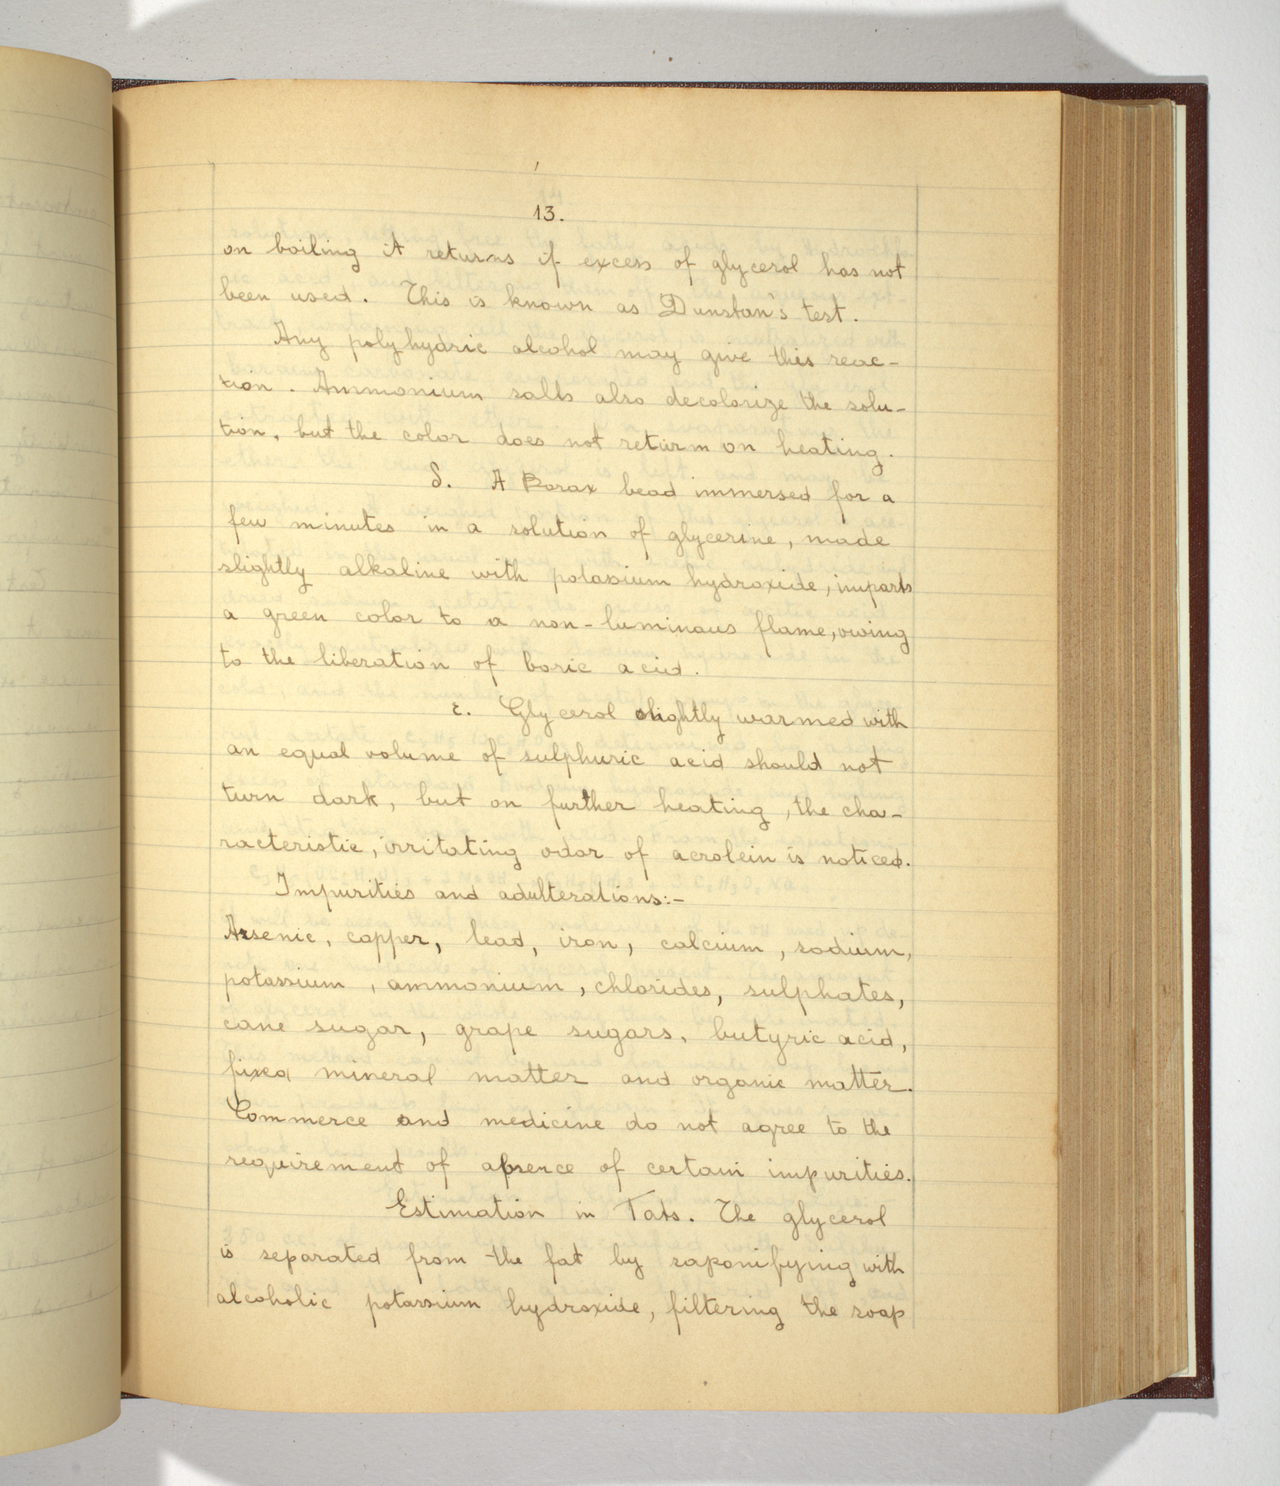 13.
on boiling it returns if excess of glycerol has not
been used. This is known as Dunstan's test.
Any polyhydric alcohol may give this reac-
tion. Ammonium salts also decolorize the solu-
tion, but the color does not return on heating.
δ. A Borax bead immersed for a
few minutes in a solution of glycerine, made
slightly alkaline with potassium hydroxide, imparts
a green color to a non-luminous flame, owing
to the liberation of boric acid.
ε. Glycerol slightly warmed with
an equal volume of sulphuric acid should not
turn dark, but on further heating, the cha-
racteristic, irritating odor of acrolein is noticed.
Impurities and adulterations:-
Arsenic, copper, lead, iron, calcium, sodium,
potassium, ammonium, chlorides, sulphates,
cane sugar, grape sugars, butyric acid,
fixed mineral matter and organic matter.
Commerce and medicine do not agree to the
requirement of absence of certain impurities.
Estimation in Fats. The glycerol
is separated from the fat by saponifying with
alcoholic potassium hydroxide, filtering the soap